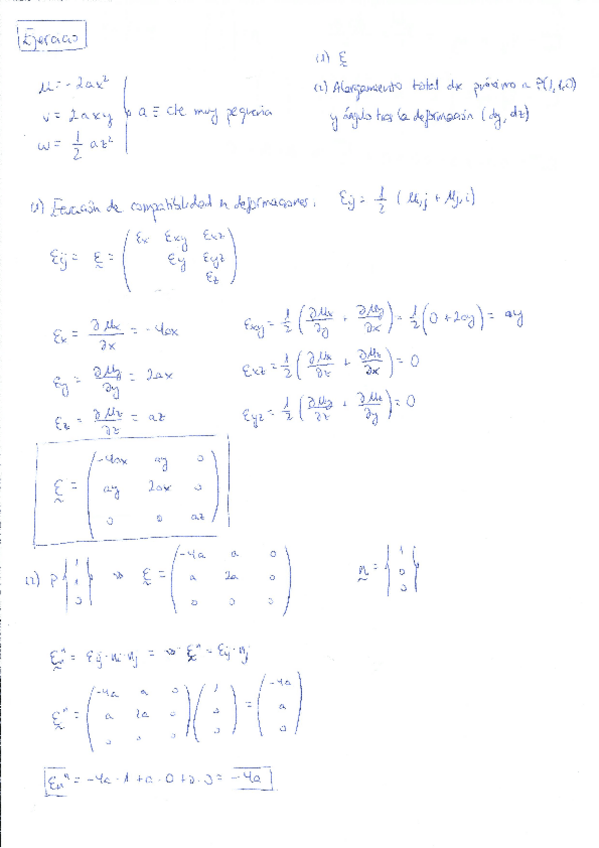 Ejercicio
u = -2ax²
v = 2axy
w = 1/2 az²
a ≡ cte muy pequeña
(1) ε
(2) Alargamiento total dx próximo a P(1,1,0)
y ángulo tras la deformación (dy, dz)
(1) Ecuación de compatibilidad en deformaciones. εij = 1/2 (ui,j + uj,i)
εij = ε = ( εx εxy εxz
εy εyz
εz )
εx = ∂ux/∂x = -4ax
εxy = 1/2 (∂ux/∂y + ∂uy/∂x) = 1/2 (0 + 2ay) = ay
εy = ∂uy/∂y = 2ax
εxz = 1/2 (∂ux/∂z + ∂uz/∂x) = 0
εz = ∂uz/∂z = az
εyz = 1/2 (∂uy/∂z + ∂uz/∂y) = 0
ε = ( -4ax ay 0
ay 2ax 0
0 0 az )
(2) P {1 1 0} ⇒ ε = ( -4a a 0
a 2a 0
0 0 0 )
n = {1 0 0}
εⁿ = εij · ni · nj = ⇒ εⁿ = εij · nj
εⁿ = ( -4a a 0
a 2a 0
0 0 0 ) ( 1 0 0 ) = ( -4a a 0 )
εnⁿ = -4a · 1 + a · 0 + 0 · 0 = -4a